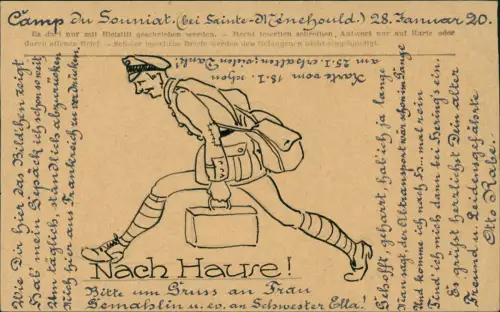 Camp du Souniat. (bei Sainte-Ménehould.) 28. Januar 20.
Es darf nur mit Bleistift geschrieben werden. — Bernt insertion schreiben, Antwort nur auf Karte oder
durch offenen Brief.
Karte vom 18.I. schon
am 25.I. erhalten, vielen Dank!
Wie Dir hier das Bildchen zeigt,
Hab' mein Gepäck ich schon so weit
Um täglich, stündlich abzurücken,
Mich hier aus Frankreich zu verdrücken.
Gehofft, geharrt, hab' ich ja lange
Man sagt, der Abtransport wär schon im Gange
Und komme ich nach H... mal rein
Find ich mich dann bei Herings ein.
Es grüßt herzlichst Dein alter
Freund u. Leidensgefährte
Otto Rabe.
Nach Hause!
Bitte um Gruss an Frau
Gemahlin u. ev. an Schwester Ella!